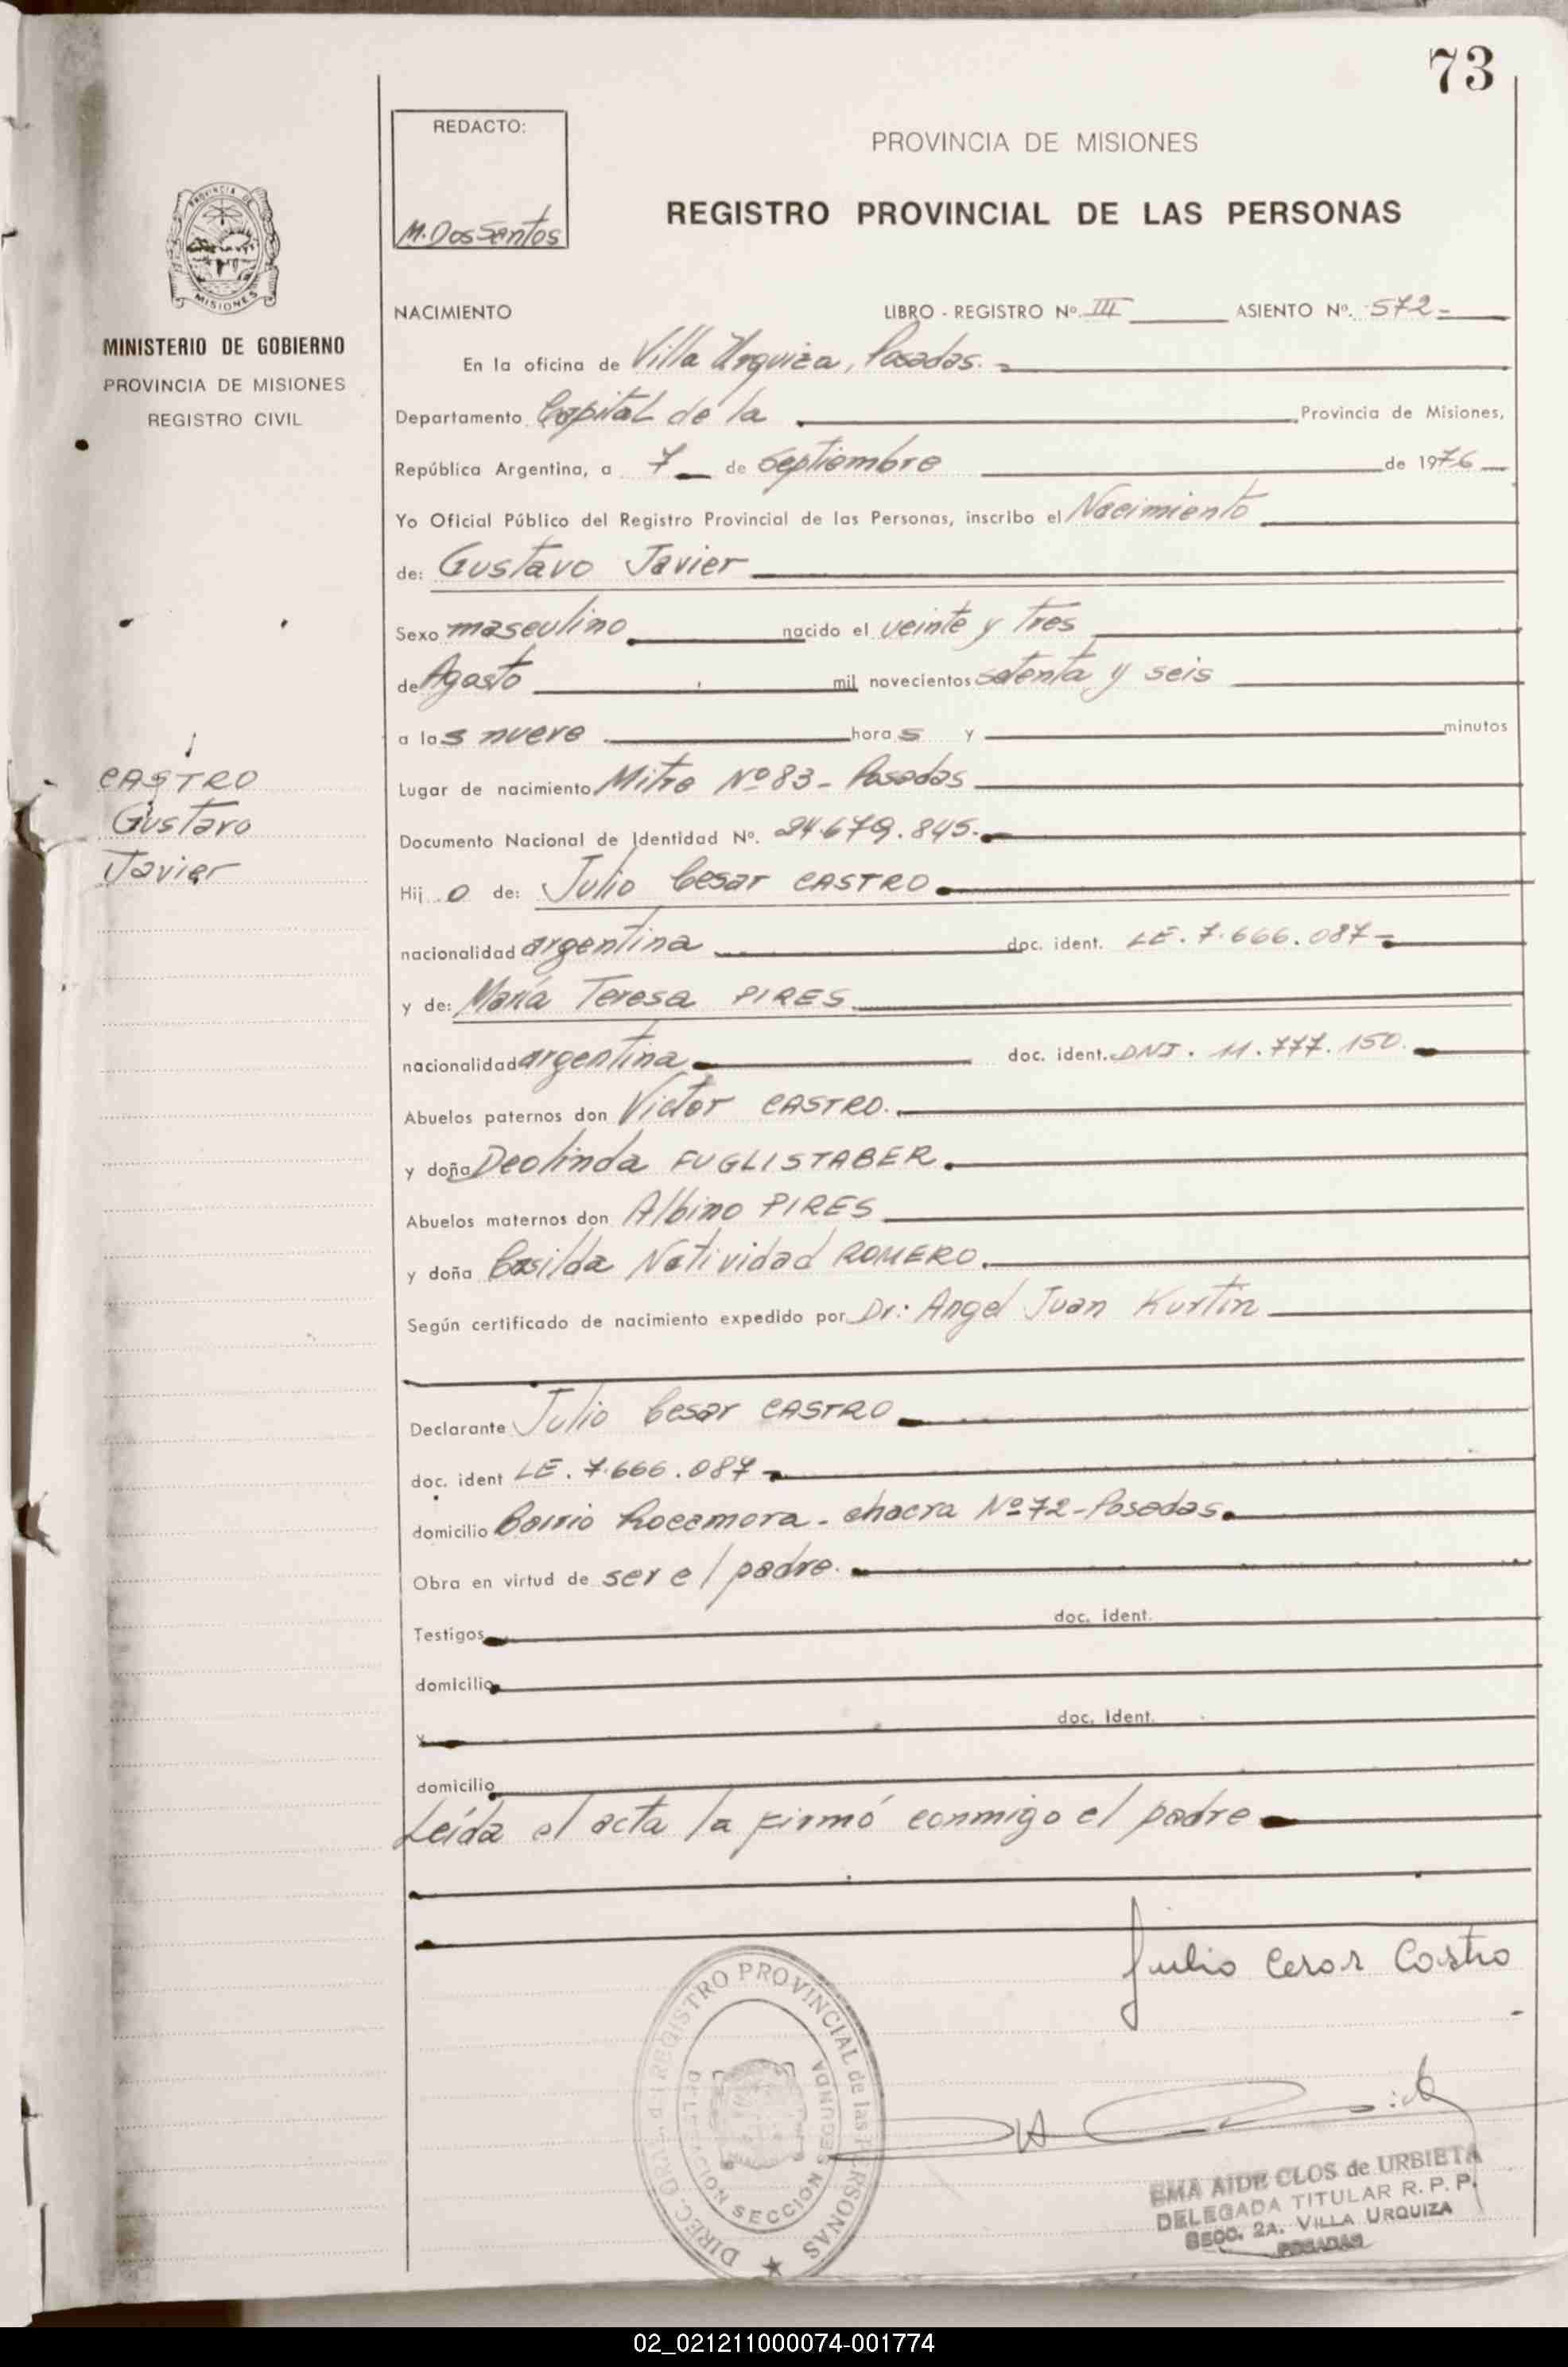 73
REDACTO:
M. Dos Santos
PROVINCIA DE MISIONES
REGISTRO PROVINCIAL DE LAS PERSONAS
PROVINCIA DE
MISIONES
MINISTERIO DE GOBIERNO
PROVINCIA DE MISIONES
REGISTRO CIVIL
NACIMIENTO LIBRO - REGISTRO Nº. III ASIENTO Nº. 572-
En la oficina de Villa Urquiza, Posadas.-
Departamento Capital de la Provincia de Misiones,
República Argentina, a 7 de septiembre de 1976
Yo Oficial Público del Registro Provincial de las Personas, inscribo el Nacimiento
de: Gustavo Javier
Sexo masculino nacido el veinte y tres
de Agosto mil novecientos setenta y seis
a las nueve horas y minutos
CASTRO
Gustavo
Javier
Lugar de nacimiento Mitre Nº 83 - Posadas
Documento Nacional de Identidad Nº. 24.679.845.-
Hijo de: Julio Cesar CASTRO
nacionalidad argentina doc. ident. LE. 7.666.087-
y de: María Teresa PIRES
nacionalidad argentina doc. ident. DNI. 11.777.150.
Abuelos paternos don Victor CASTRO.
y doña Deolinda FUGLISTABER.
Abuelos maternos don Albino PIRES
y doña Casilda Natividad ROMERO.
Según certificado de nacimiento expedido por Dr: Angel Juan Kurtin
Declarante Julio Cesar CASTRO
doc. ident LE. 7.666.087-
domicilio Barrio Rocamora - chacra Nº 72 - Posadas.
Obra en virtud de ser el padre.
Testigos doc. ident.
domicilio
y doc. ident.
domicilio
Leída el acta la firmó conmigo el padre
Julio Cesar Castro
DIREC. GRAL. del REGISTRO PROVINCIAL de las PERSONAS
DELEGACION SECCION SEGUNDA
EMA AIDE CLOS de URBIETA
DELEGADA TITULAR R. P. P.
SECC. 2A. VILLA URQUIZA
POSADAS
02_021211000074-001774